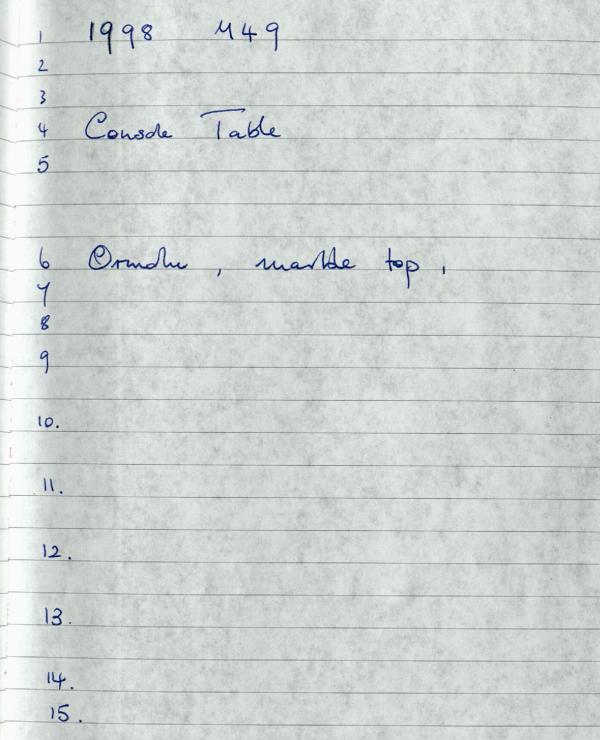 1 1998 M49
2
3
4 Console Table
5
6 Ormolu, marble top,
7
8
9
10.
11.
12.
13.
14.
15.